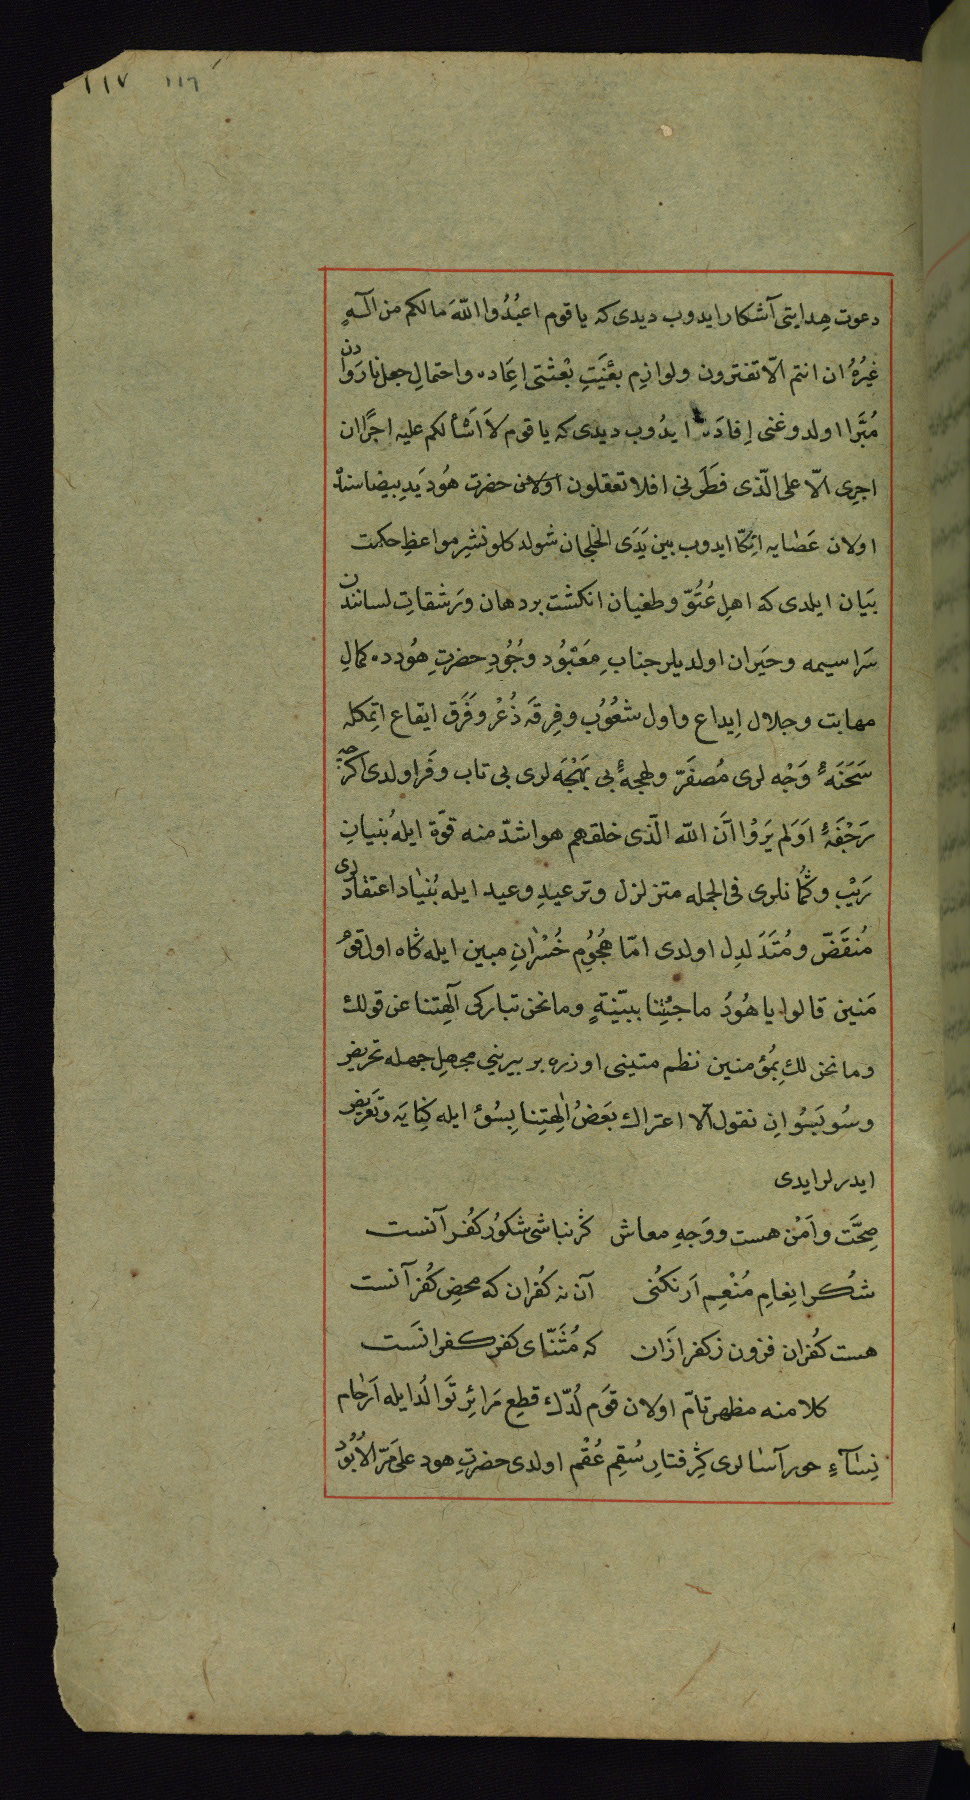 ١١٧ ١١٦
دعوت هِدايتی آشكار ايدوب ديدی كه يا قوم اعبُدُوا اللّهَ مالكم من الٓهٍ
غيرُهُ ان انتم الّا تفترون ولوازِم بِعْثتی اِعَاده واحتمالِ جعل ناروادن
مُبَّرا اولدوغنی اِفادَه ايدُوب ديدی كه يا قوم لاَ اَسْألكم عليه اجرًا ان
اجرِی الّا علی الّذی فطَرَنی افلا تعقلون اولان حضرت هُود يَدِ بيضاسندْ
اولان عَصٰايه اتِّكا ايدوب بين يَدَی شولدكلو نشرِ مواعظِ حكمت
بَيان ايلدی كه اهلِ عُتُوّ وطغيان انكشت بر دهان ورشقاتِ لسانندن
سَراسيمه وحَيران اولديلر جنابِ مَعْبُود وجُودِ حضرتِ هُودده كمالِ
مهابت وجلال اِيداع واول شعُوُب وفِرقَه ذُعْر وفَرَق ايقاع اتمكله
سَحَنَهٔ وَجْه لری مُصفَرّ ولهجهٔ بی بَهْجَه لری بی تاب وفَر اولدی اكرچه
رَجْفَهٔ اَوَلم يَرَوْا اَنّ اللّه الّذی خلقهم هو اشدّ منه قوّة ايله بُنيانِ
رَيْب وكُمَانلری فی الجمله متزلزل وترعيدِ وعيد ايله بُنيٰاد اعتقادلری
مُنقَضّ ومُتَدَلدِل اولدی امّا هُجُوُم خُسْرٰانِ مبين ايله كاه اولقوُ
مَنين قالوا يا هُودُ ما جئتَنا ببيّنةٍ وما نحن بتاركی آلهِتنا عن قولك
وما نحن لك بِمُؤمنين نظم متينی اوزره بربيرينی مجهل جهله تحريض
وسُو بَسُو اِن نقول الّا اعتراك بَعضُ اٰلهِتِنا بِسُوٓءٍ ايله كِنايَه وتَعريض
ايدرلر ايدی
صِحَّت واَمْن هست ووَجهِ معاش كر نباشی شكوُر كُفر آنست
شُكر انِعامِ مُنْعِم اَر نكُنی آن نه كفران كه محضِ كُفر آنست
هست كُفران فزون ز كفر ازَان كه مُثنّای كفر كفرانَست
كلامنه مظهرِ تامّ اولان قوم لُدّك قطيع مَرائِر تَوالُد ايله اَرحٰام
نِسٰآءِ حور آسٰا لری كِرِفتارِ سُقِم عُقْم اولدی حضرتِ هود علی مَرّ الدُّبُوُر